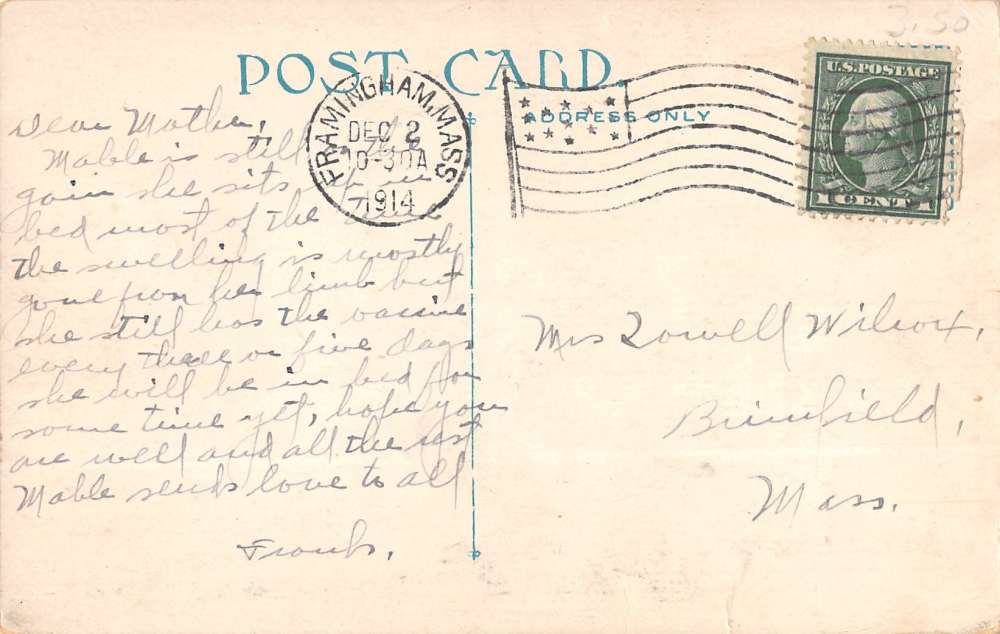 3.50
POST CARD.
ADDRESS ONLY
FRAMINGHAM, MASS
DEC 2
10-30A
1914
U.S. POSTAGE
1 CENT 1
Dear Mother,
Mable is still
gain she sits up in
bed most of the time
the swelling is mostly
gone from her limb but
she still has the vaccine
every three or five days
she will be in bed for
some time yet, hope you
are well and all the rest
Mable sends love to all
Frank.
Mrs Lowell Wilcox,
Brimfield,
Mass.